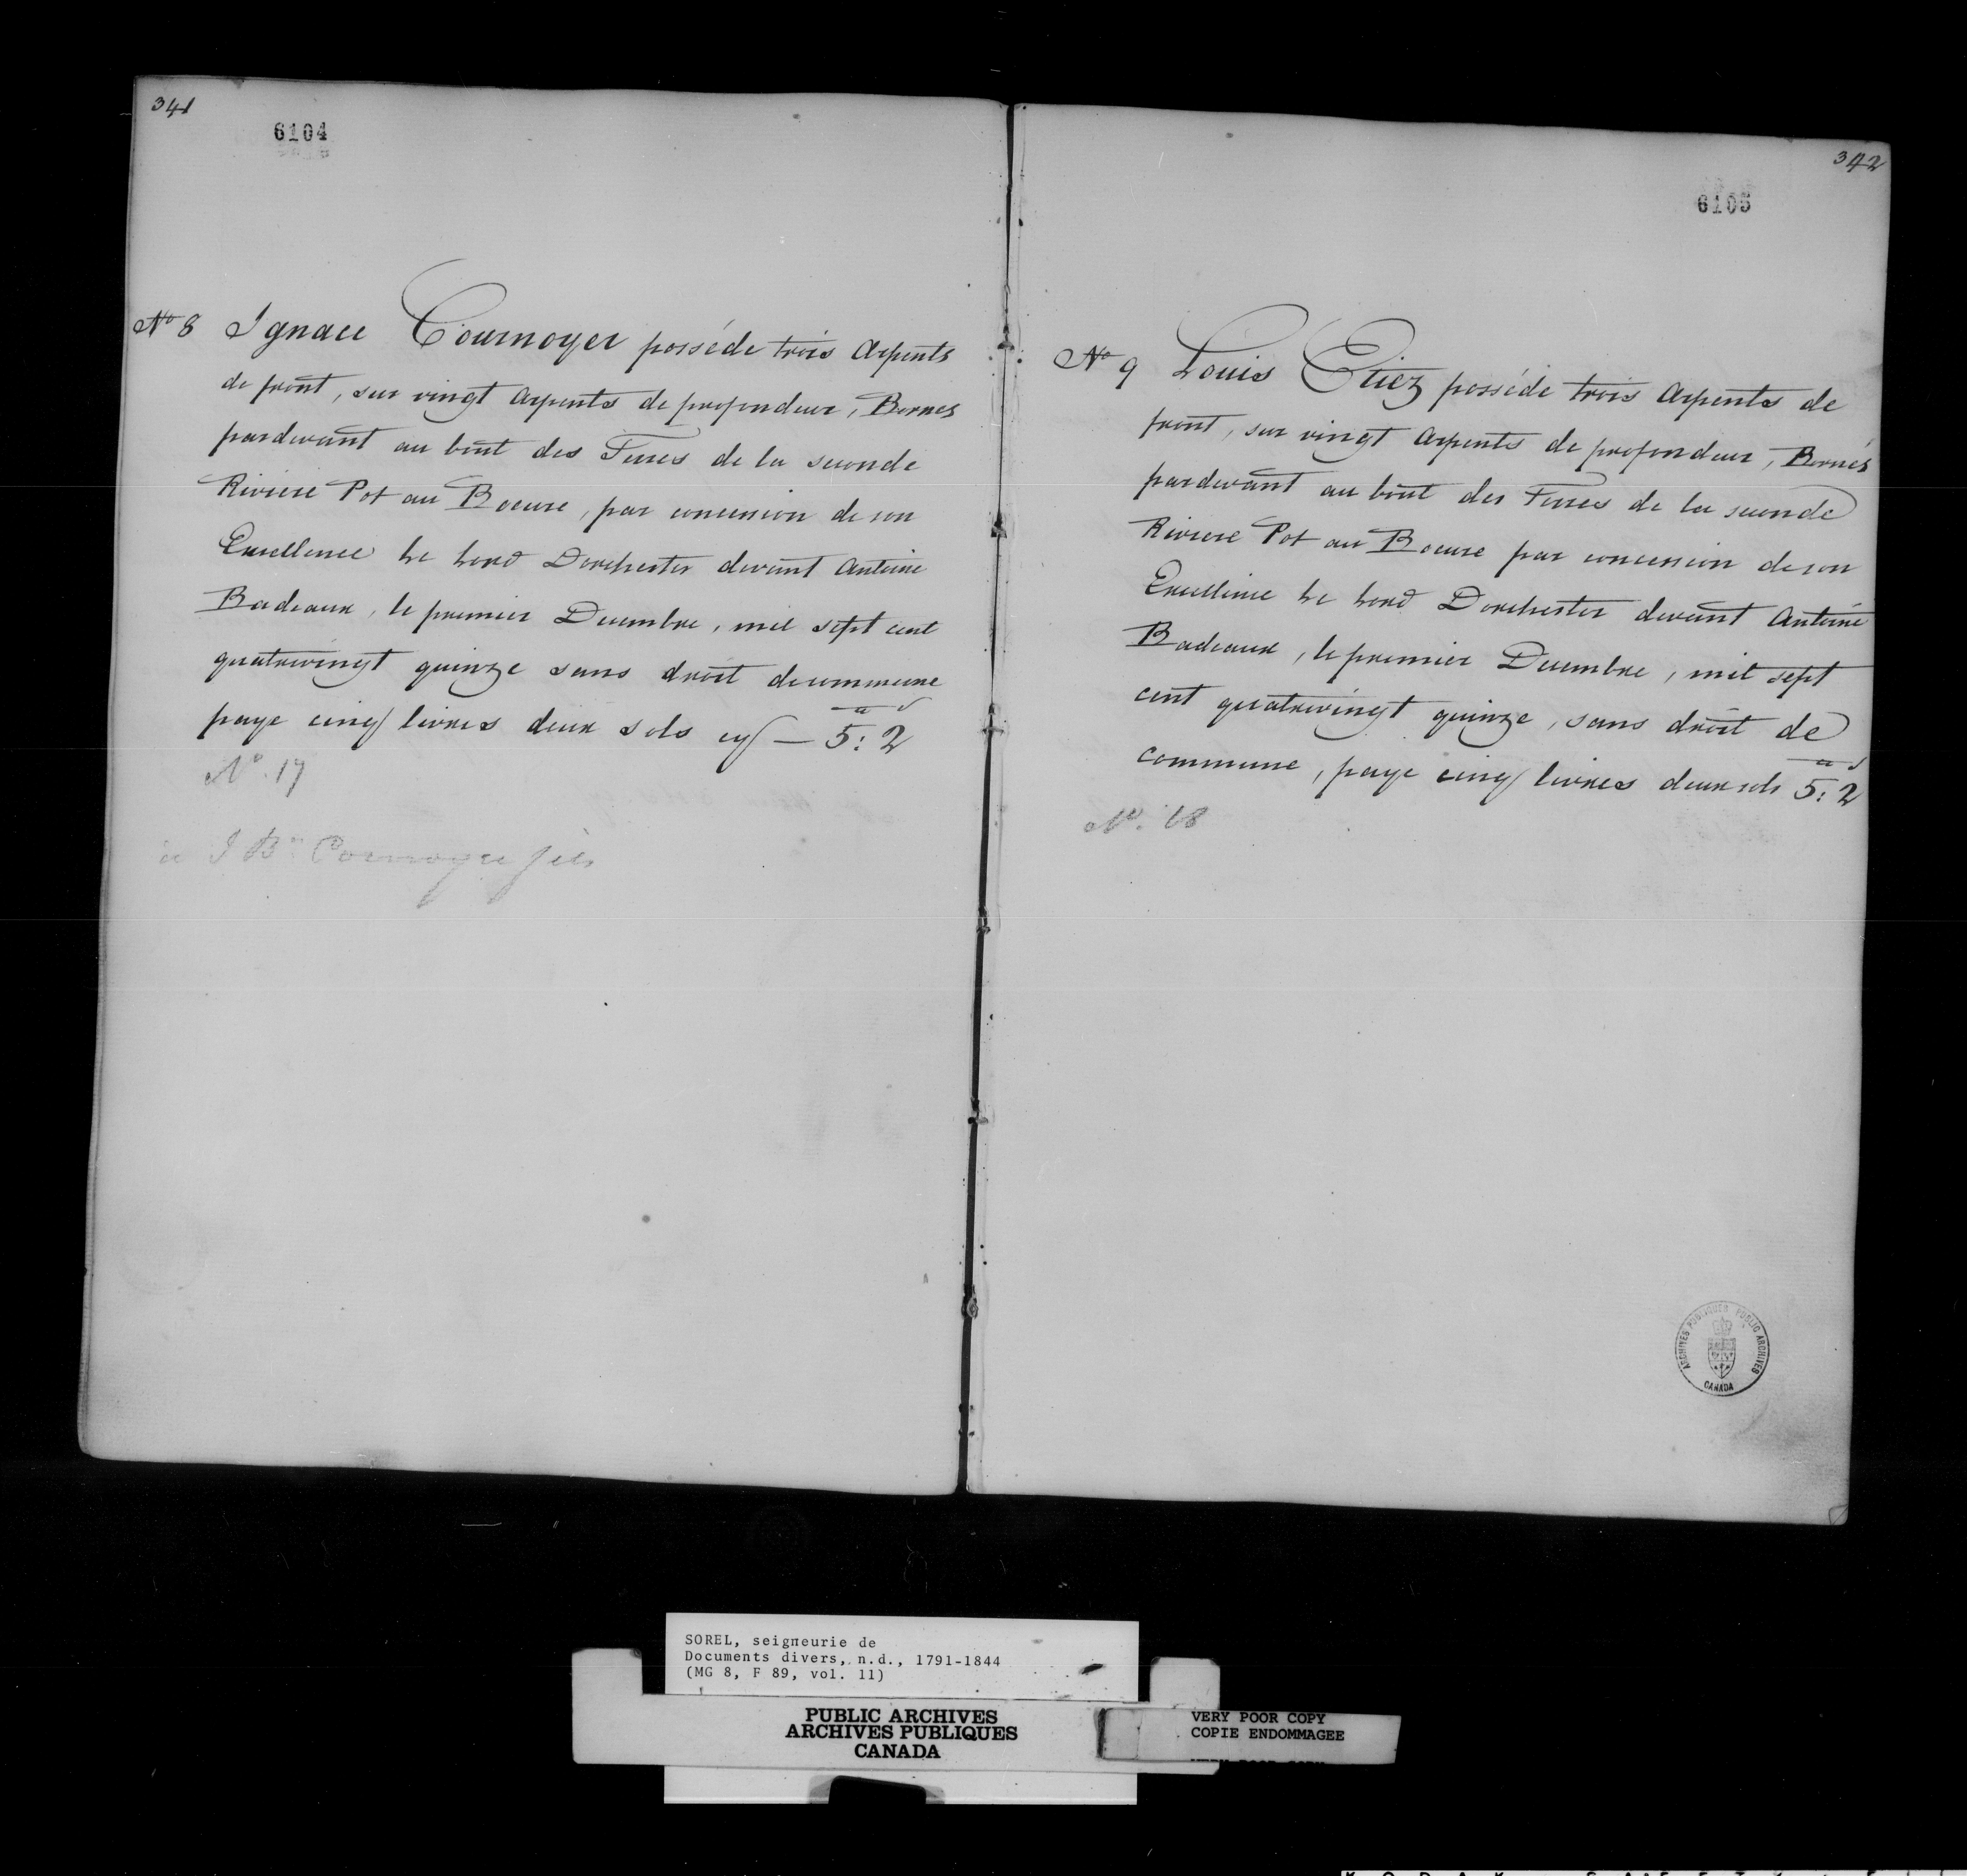 341
6104
No 8 Ignace Cournoyer posséde trois Arpents
de front, sur vingt Arpents de profondeur, Bornes
pardevant au bout des Terres de la seconde
Riviere Pot au Boeure, par concession de son
Excellence Le Lord Dorchester devant Antoine
Badeaux, le premier Decembre, mil sept cent
quatrevingt quinze sans droit de commune
paye cinq livres deux sols cy — 5: 2
No. 17
a J Bte Cournoyer fils
342
6105
No 9 Louis Etiez posséde trois Arpents de
front, sur vingt Arpents de profondeur, Bornés
pardevant au bout des Terres de la seconde
Riviere Pot au Boeure par concession de son
Excellence Le Lord Dorchester devant Antoine
Badeaux, le premier Decembre, mil sept
cent quatrevingt quinze, sans droit de
commune, paye cinq livres deux sols 5: 2
No. 18
ARCHIVES PUBLIQUES PUBLIC ARCHIVES
CANADA
SOREL, seigneurie de
Documents divers, n.d., 1791-1844
(MG 8, F 89, vol. 11)
PUBLIC ARCHIVES
ARCHIVES PUBLIQUES
CANADA
VERY POOR COPY
COPIE ENDOMMAGEE